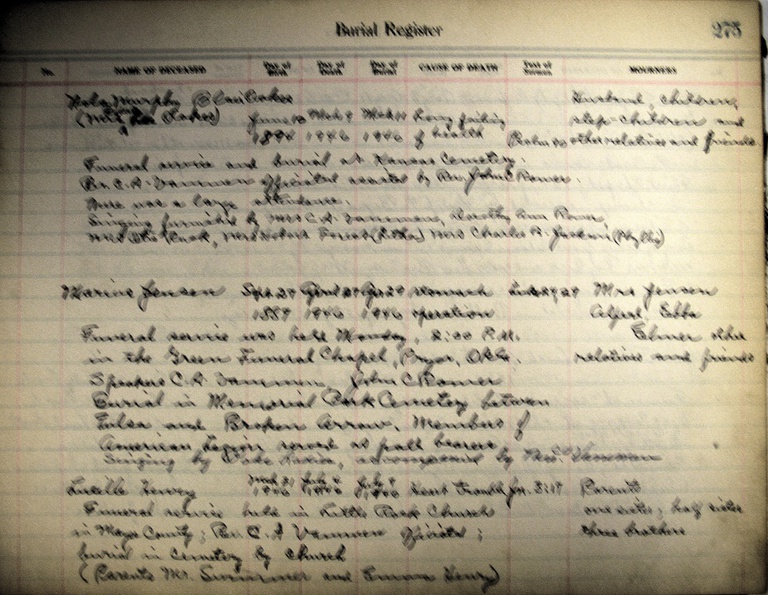 Burial Register 275
No. NAME OF DECEASED Day of Birth Day of Death Day of Burial CAUSE OF DEATH Text of Sermon MOURNERS
Murphy Husband, children,
(Mrs June 10 Mch 9 Mch 11 Long failing step-children and
1894 1946 1946 of health other relatives and friends
Funeral service and burial at Kansas Cemetery.
Rev. C.A. Vammen officiated assisted by Rev. John C Romer.
There was a large attendance.
Singing furnished by Mrs C.A. Vammen, Dorothy Ann Romer,
Mrs Mrs Mrs Charles R. Jackson (Phyllis)
Marius Jensen Sept 29 April 29 stomach Mrs Jensen
1889 1946 1946 operation Ebba
Funeral service was held Monday, 2:00 P.M. Elmer other
in the Green Funeral Chapel, Pryor, Okla. relatives and friends
Speakers C.A. Vammen, John C Romer
Burial in Memorial Park Cemetery between
Tulsa and Broken Arrow. Members of
American Legion served as pall bearers
Singing by accompanied by Mrs. Vammen
Lucille Henry July 4 1946 1946 1946 Heart trouble Parents
Funeral service held in Little Rock Church one sister; half sister
in Mayes County; Rev. C. A Vammen officiated; three brothers
burial in cemetery by church
(Parents Mr. and Emma Henry)